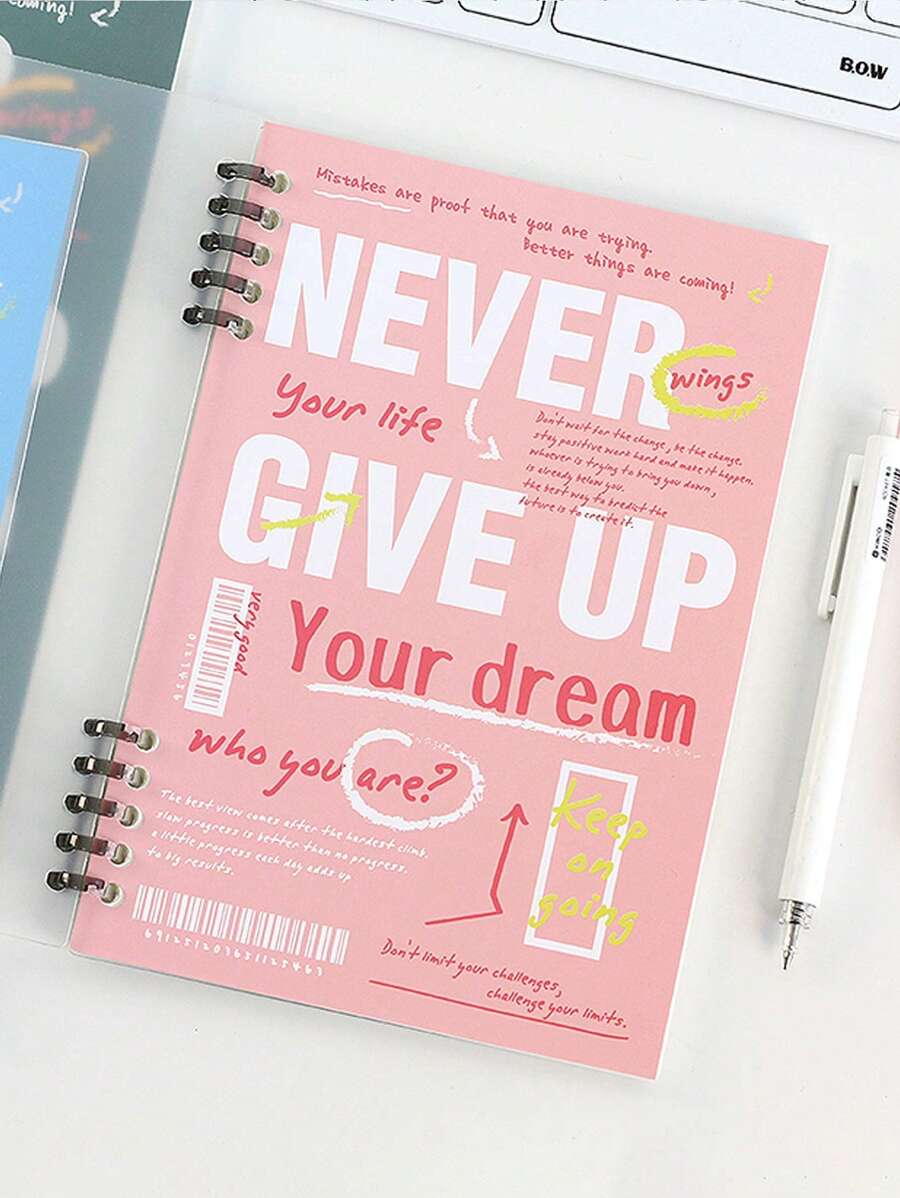 coming!
B.O.W
wings
Mistakes are proof that you are trying.
Better things are coming!
NEVER
wings
your life
Don't wait for the change, be the change.
stay positive work hard and make it happen.
whoever is trying to bring you down,
is already below you.
the best way to predict the
future is to create it.
GIVE UP
very good
Your dream
who you are?
The best view comes after the hardest climb.
slow progress is better than no progress.
a little progress each day adds up
to big results.
Keep
on
going
691251203651125463
Don't limit your challenges,
challenge your limits.